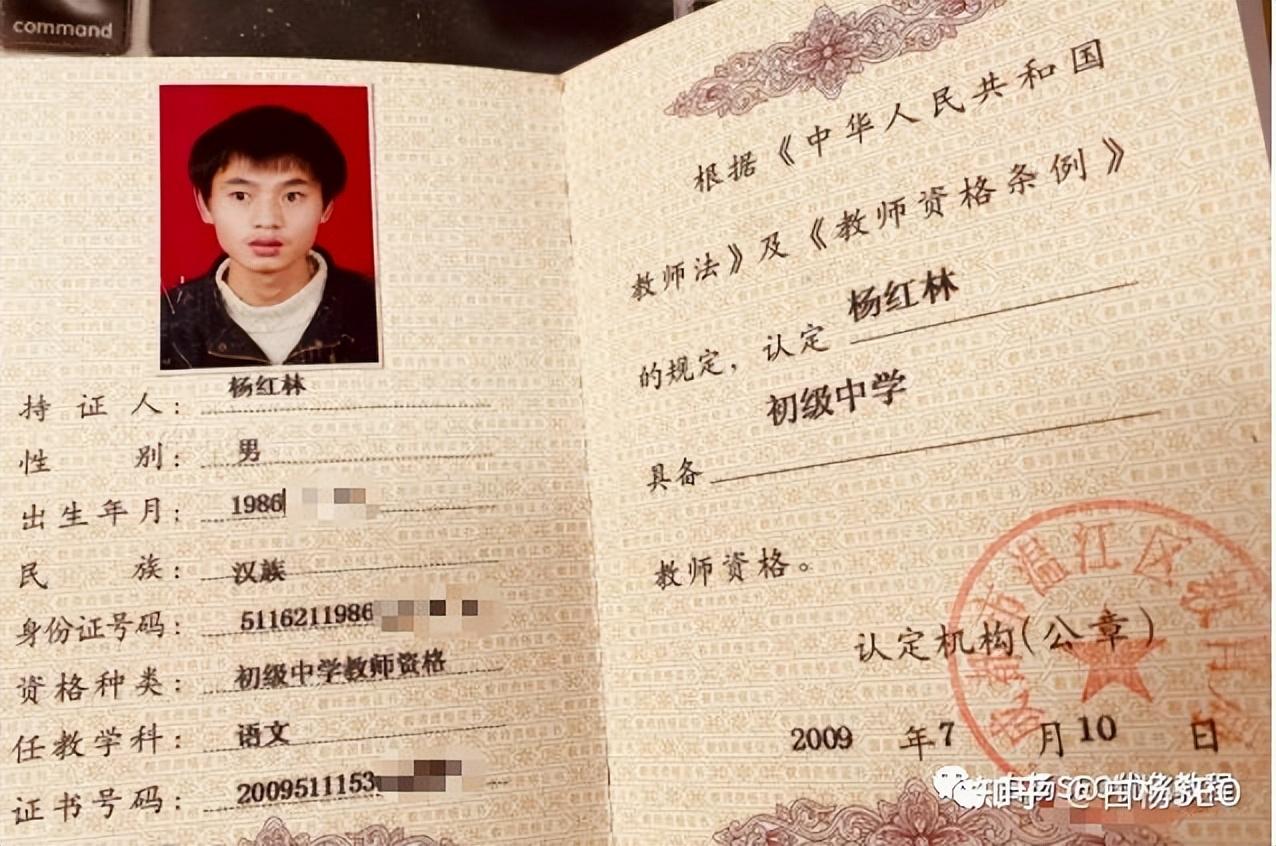 command
杨红林
持证人：
男
性别：
1986
出生年月：
汉族
民族：
5116211986
身份证号码：
初级中学教师资格
资格种类：
语文
任教学科：
2009511153
证书号码：
根据《中华人民共和国
教师法》及《教师资格条例》
的规定，认定 杨红林
初级中学
具备
教师资格。
认定机构(公章)
2009 年 7 月 10 日
温江区教育局
知乎 @白杨SEO